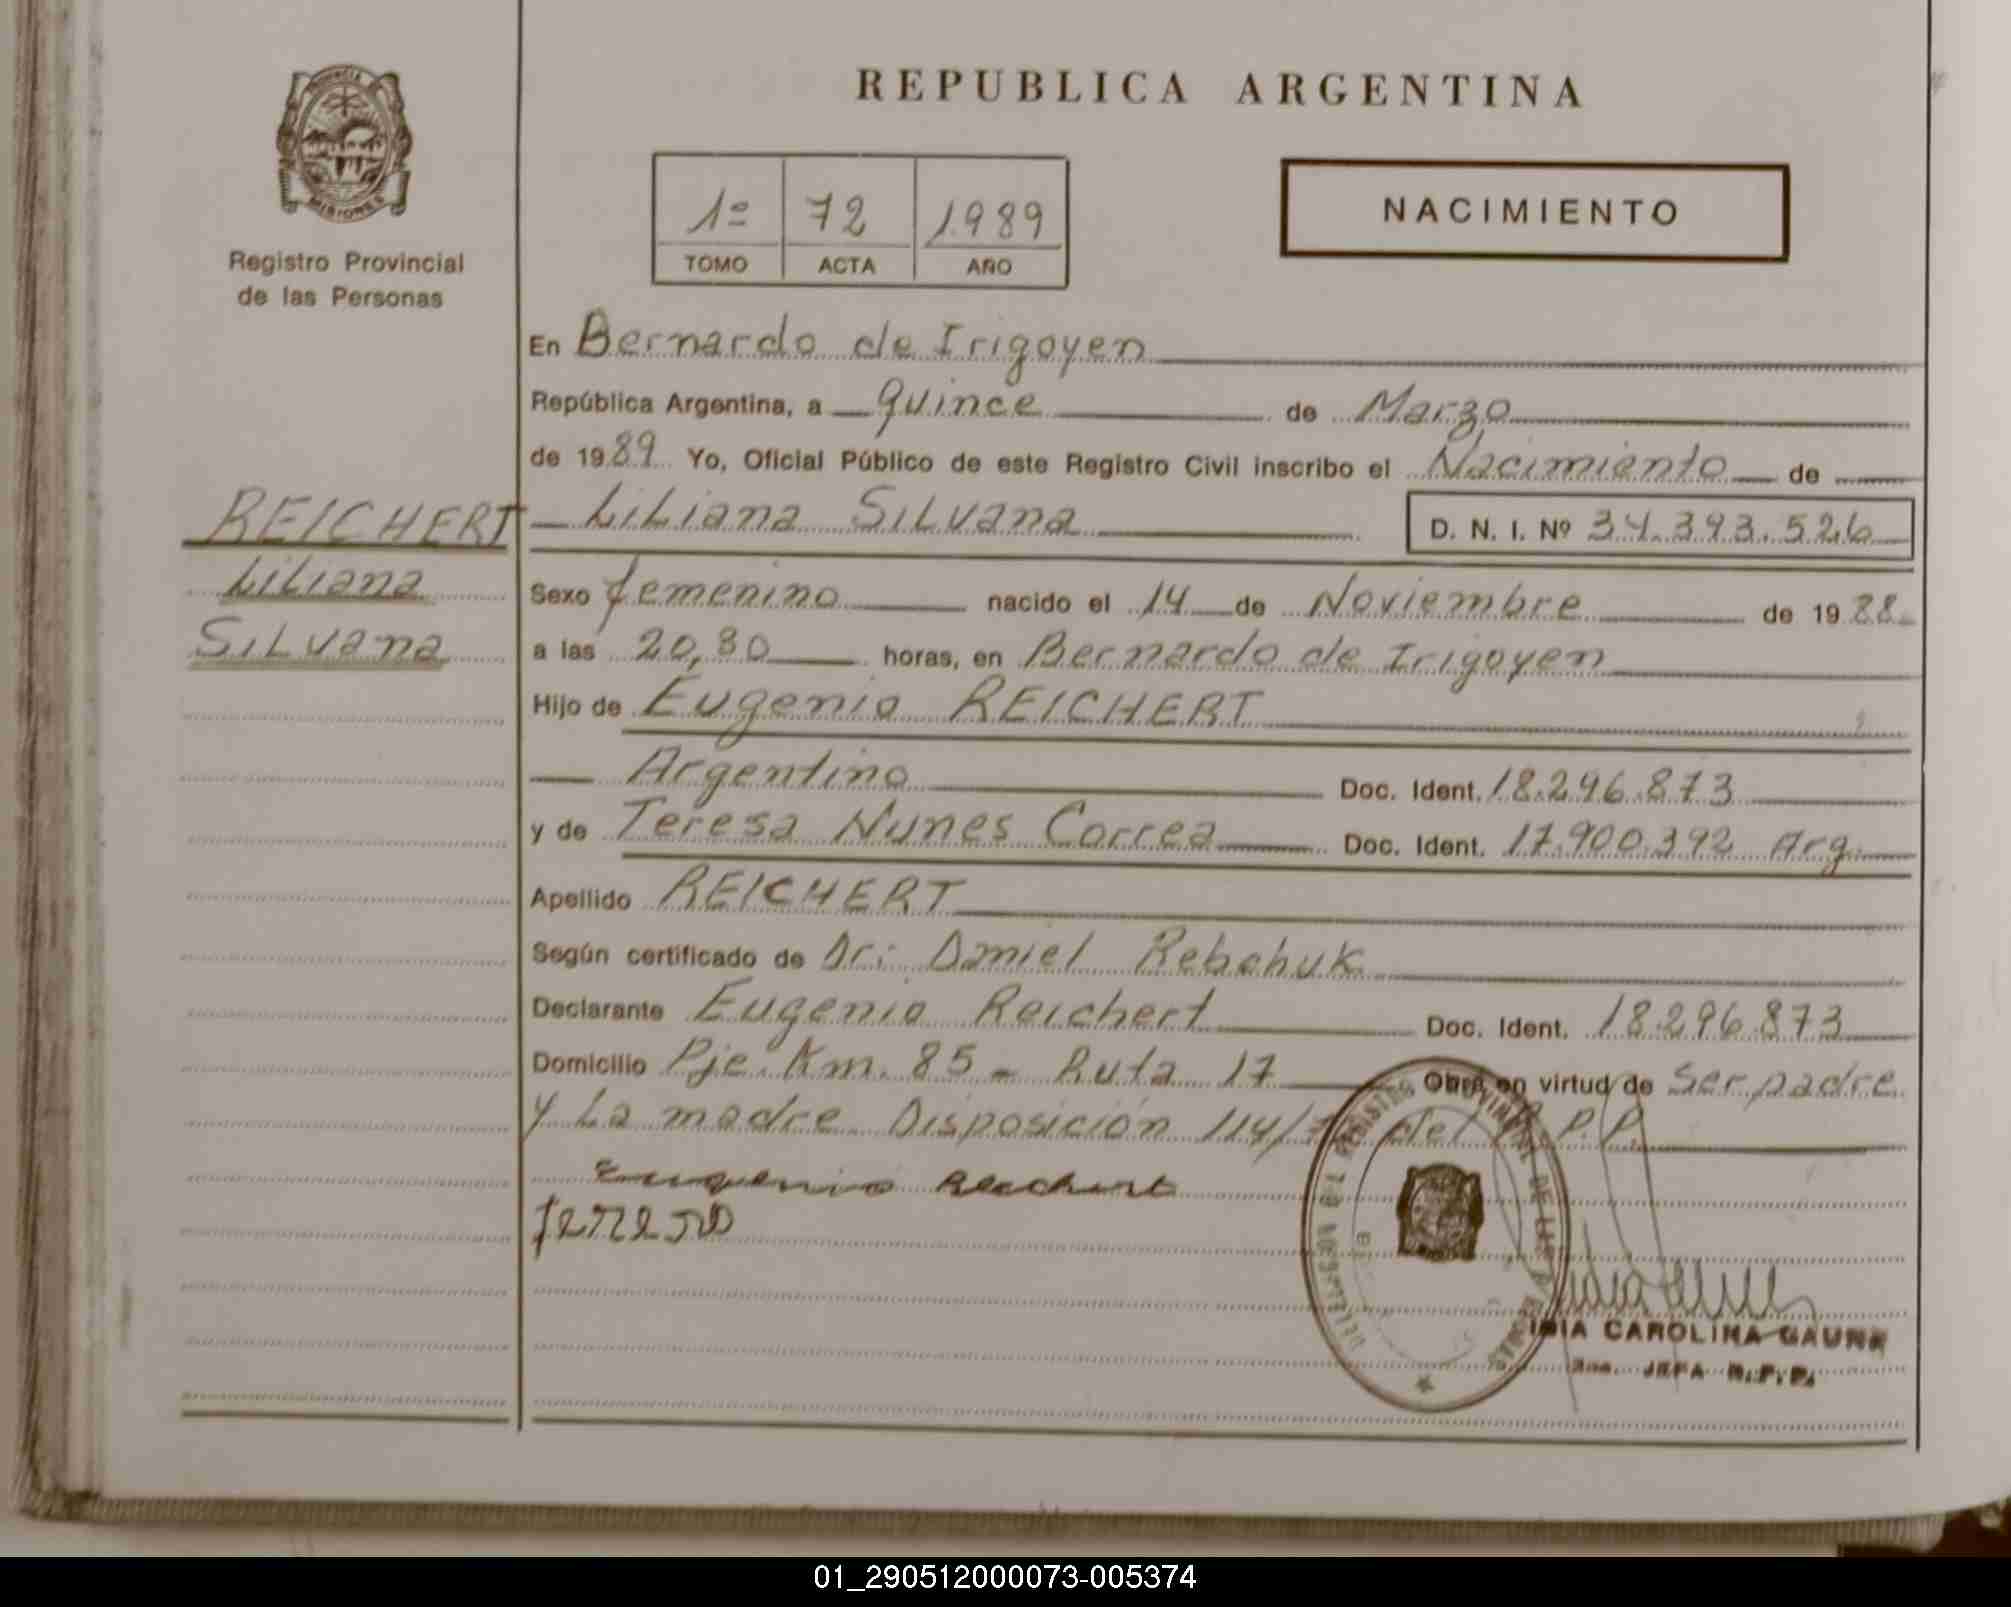 REPUBLICA ARGENTINA
MISIONES
Registro Provincial
de las Personas
1º 72 1989
TOMO ACTA AÑO
NACIMIENTO
En Bernardo de Irigoyen
República Argentina, a quince de Marzo
de 1989 Yo, Oficial Público de este Registro Civil inscribo el Nacimiento de
REICHERT
Liliana
Silvana
Liliana Silvana D. N. I. Nº 34.393.526
Sexo femenino nacido el 14 de Noviembre de 1988
a las 20,30 horas, en Bernardo de Irigoyen
Hijo de Eugenio REICHERT
Argentino Doc. Ident. 18.296.873
y de Teresa Nunes Correa Doc. Ident. 17.900.392 Arg.
Apellido REICHERT
Según certificado de Dr: Daniel Rebchuk
Declarante Eugenio Reichert Doc. Ident. 18.296.873
Domicilio Pje. Km. 85 - Ruta 17 Obra en virtud de Ser padre
y La madre Disposición 114/ del P.P.
Eugenio Reichert
CAROLINA GAUNA
JEFA R.P.P.
01_290512000073-005374